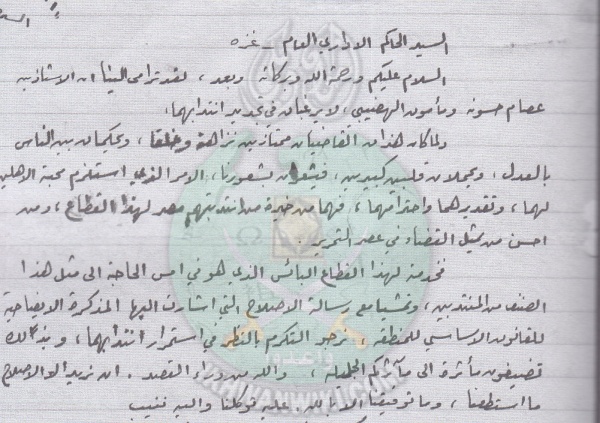 السيد الحاكم الاداري العام - غزه
السلام عليكم ورحمة الله وبركاته وبعد ، لقد ترامى الينا ان الاستاذين
عصام حسونه ومأمون الهضيبي ، لا يرغبان في تجديد انتدابهما ،
ولما كان هذان القاضيان ممتازين نزاهة وخلقا ، ويحكمان بين الناس
بالعدل ، ويحملان قلبين كبيرين ، فيشعران بشعورنا ، الامر الذي استلزم محبة الاهلين
لهما ، وتقديرهما واحترامهما ، فهما من خيرة من انتدبتهم مصر لهذا القطاع ، ومن
احسن من يمثل القضاء في عصر التحرير .
فخدمة لهذا القطاع البائس الذي هو في امس الحاجة الى مثل هذا
الصنف من المنتدبين ، وتمشيا مع رسالة الاصلاح التي اشارت اليها المذكرة الايضاحية
للقانون الاساسي للمنطقة ، نرجو التكرم بالنظر في استمرار انتدابهما ، وبذالك
تضيفون مأثرة الى مآثركم الجليلة ، والله من وراء القصد . ان نريد الا الاصلاح
ما استطعنا ، وما توفيقنا الا بالله . عليه توكلنا واليه ننيب
WWW.IKHWANWIKI.COM